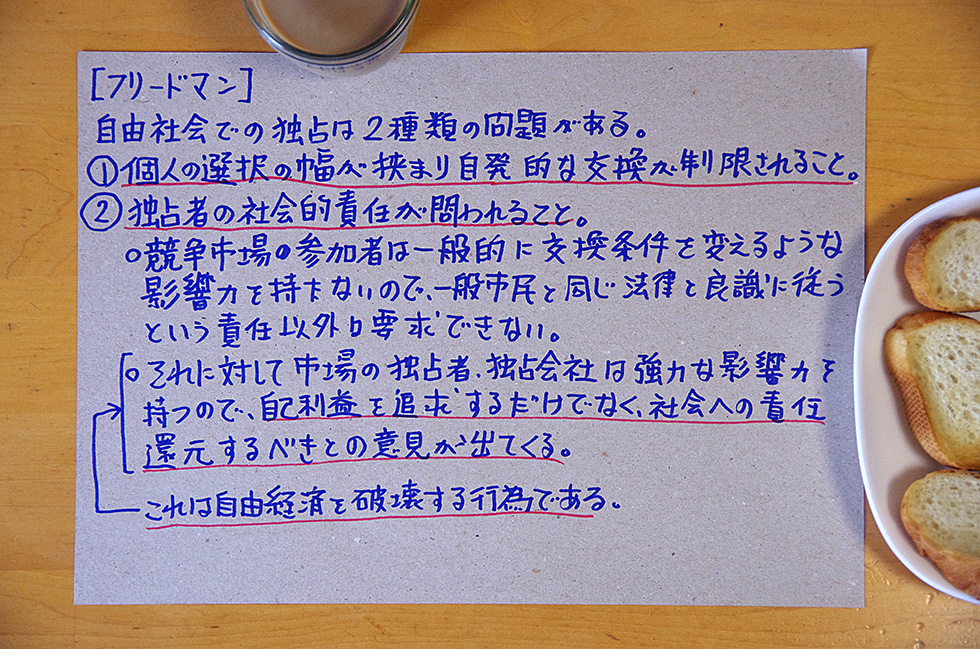 [フリードマン]
自由社会での独占は2種類の問題がある。
①個人の選択の幅が狭まり自発的な交換が制限されること。
②独占者の社会的責任が問われること。
○競争市場の参加者は一般的に交換条件を変えるような
影響力を持たないので、一般市民と同じ法律と良識に従う
という責任以外は要求できない。
○それに対して市場の独占者、独占会社は強力な影響力を
持つので、自己利益を追求するだけでなく、社会への責任
還元するべきとの意見が出てくる。
これは自由経済を破壊する行為である。